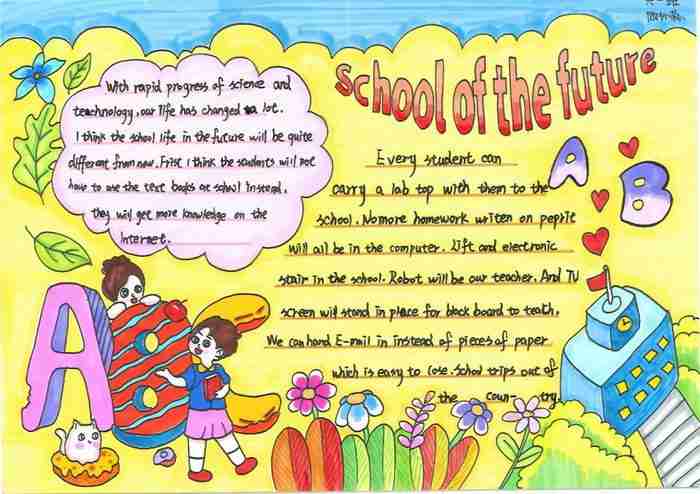 School of the future
With rapid progress of science and
teachnology, our life has changed a lot.
I think the school life in the future will be quite
different from now. Frist I think the students will not
have to use the text books at school instead,
they will get more knowledge on the
Internet.
Every student can
carry a lab top with them to the
school. No more homework writen on peprit
Will all be in the computer. Lift and electronic
stair in the school. Robot will be our teacher. And TV
screen will stand in place for black board to teach.
We can hand E-mail in instead of pieces of paper
which is easy to lose. School trips out of
the coun-try
A
B
ABC